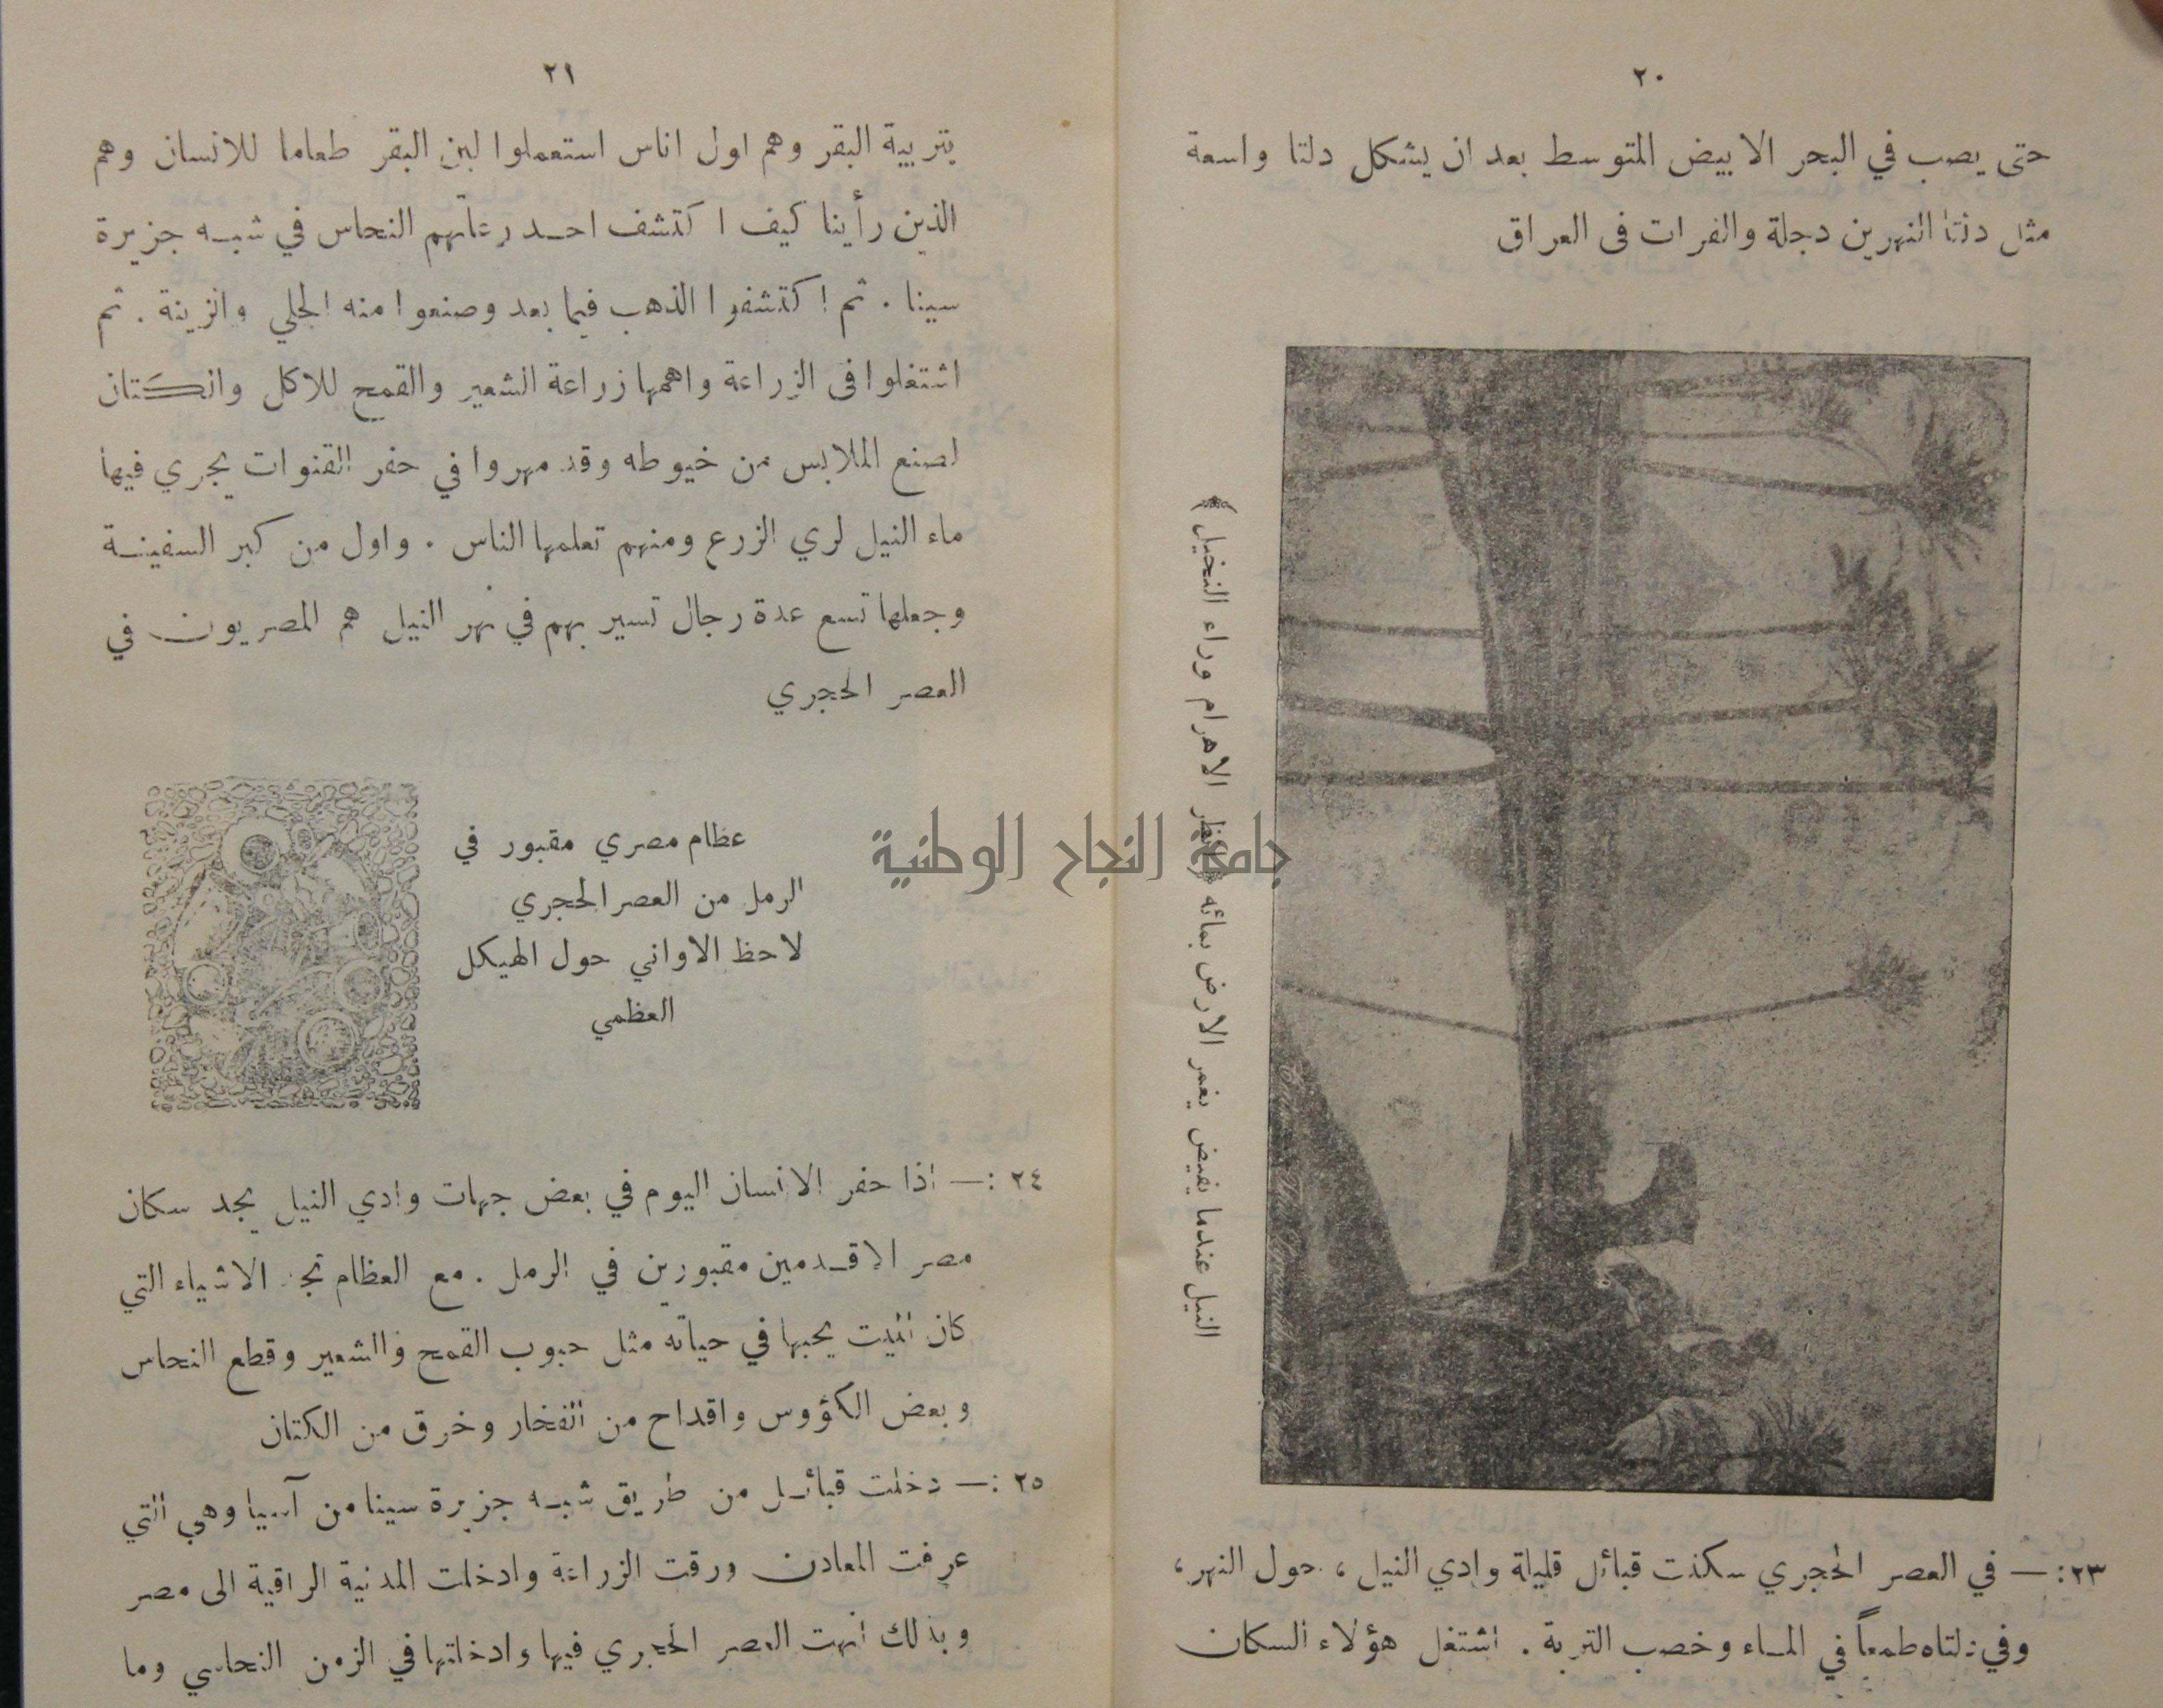 ٢٠
حتى يصب في البحر الابيض المتوسط بعد ان يشكل دلتا واسعة
مثل دلتا النهرين دجلة والفرات فى العراق
النيل عندما يفيض يغمر الارض بمائه انظر الاهرام وراء النخيل
٢٣:— في العصر الحجري سكنت قبائل قليلة وادي النيل ، حول النهر ،
وفي دلتاه طمعاً في الماء وخصب التربة . اشتغل هؤلاء السكان
٢١
بتربية البقر وهم اول اناس استعملوا لبن البقر طعاما للانسان وهم
الذين رأينا كيف اكتشف احد رعاتهم النحاس في شبه جزيرة
سينا . ثم اكتشفوا الذهب فيما بعد وصنعوا منه الحلي والزينة . ثم
اشتغلوا فى الزراعة واهمها زراعة الشعير والقمح للاكل والكتان
لصنع الملابس من خيوطه وقد مهروا في حفر القنوات يجري فيها
ماء النيل لري الزرع ومنهم تعلمها الناس . واول من كبر السفينة
وجعلها تسع عدة رجال تسير بهم في نهر النيل هم المصريون في
العصر الحجري
عظام مصري مقبور في
الرمل من العصر الحجري
لاحظ الاواني حول الهيكل
العظمي
٢٤ :— اذا حفر الانسان اليوم في بعض جهات وادي النيل يجد سكان
مصر الاقدمين مقبورين في الرمل . مع العظام تجد الاشياء التي
كان الميت يحبها في حياته مثل حبوب القمح والشعير وقطع النحاس
وبعض الكؤوس واقداح من الفخار وخرق من الكتان
٢٥ :— دخلت قبائل من طريق شبه جزيرة سينا من آسيا وهي التي
عرفت المعادن ورقت الزراعة وادخلت المدنية الراقية الى مصر
وبذلك انهت العصر الحجري فيها وادخلتها في الزمن النحاسي وما
جامعة النجاح الوطنية